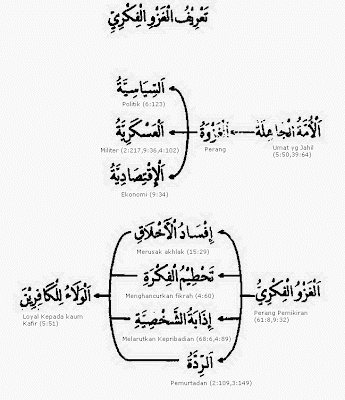 تَعْرِيْفُ الْغَزْوِ الْفِكْرِيِّ
اَلسِّيَاسِيَّةُ
Politik (6:123)
اَلْأُمَّةُ الْجَاهِلَةُ
Umat yg Jahil
(5:50,39:64)
اَلْغَزْوَةُ
Perang
اَلْعَسْكَرِيَّةُ
Militer (2:217,9:36,4:102)
اَلْإِقْتِصَادِيَّةُ
Ekonomi (9:34)
إِفْسَادُ الْأَخْلَاقِ
Merusak akhlak (15:29)
تَحْطِيْمُ الْفِكْرَةِ
Menghancurkan fikrah (4:60)
اَلْغَزْوُ الْفِكْرِيُّ
Perang Pemikiran
(61:8,9:32)
اَلْوَلَاءُ لِلْكَافِرِيْنَ
Loyal Kepada kaum
Kafir (5:51)
إِذَابَةُ الشَّخْصِيَّةِ
Melarutkan Kepribadian (68:6,4:89)
اَلرِّدَّةُ
Pemurtadan (2:109,3:149)